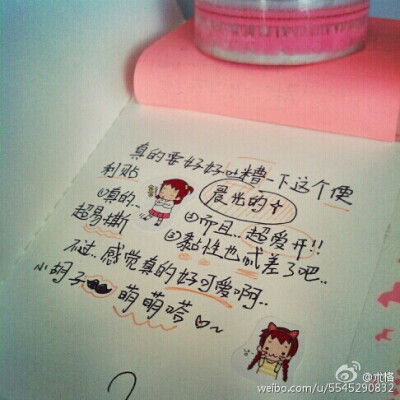 真的要好好吐糟一下这个便
利贴 晨光的↑
①真的.. ②而且..超爱开!!
超易撕 ③黏性也忒差了吧..
不过..感觉真的好可爱啊..
小胡子 萌萌嗒♡~
weibo.com/u/5545290832